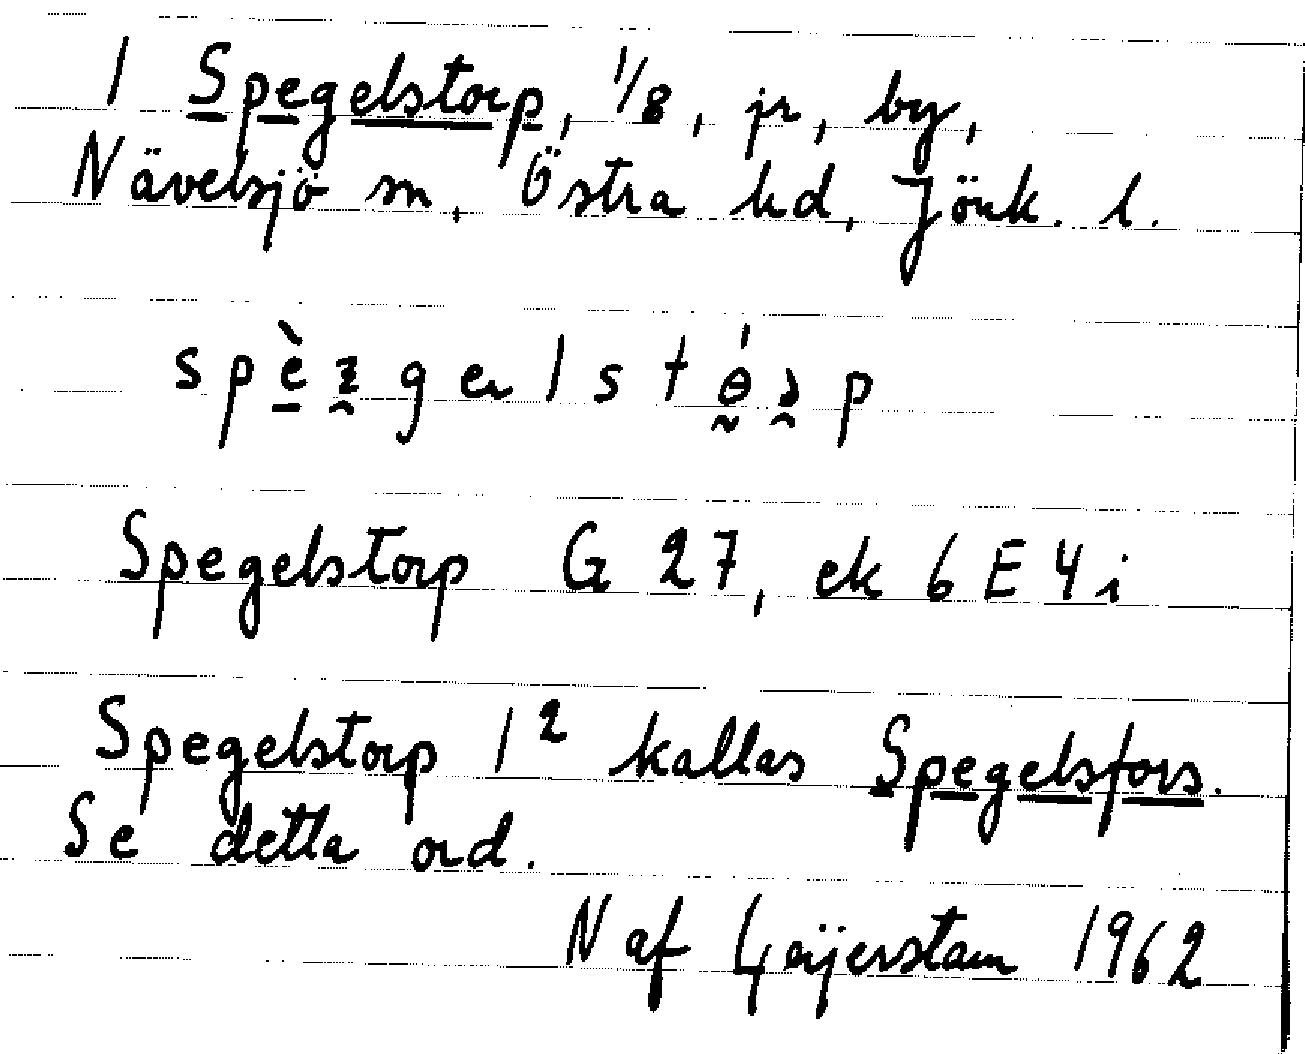 1 Spegelstorp, 1/8, jr, by,
Nävelsjö sn, Östra hd, Jönk. l.
Spegelstorp G 27, ek 6 E 4 i
Spegelstorp 1² kallas Spegelsfors.
Se detta ord.
N af Geijerstam 1962